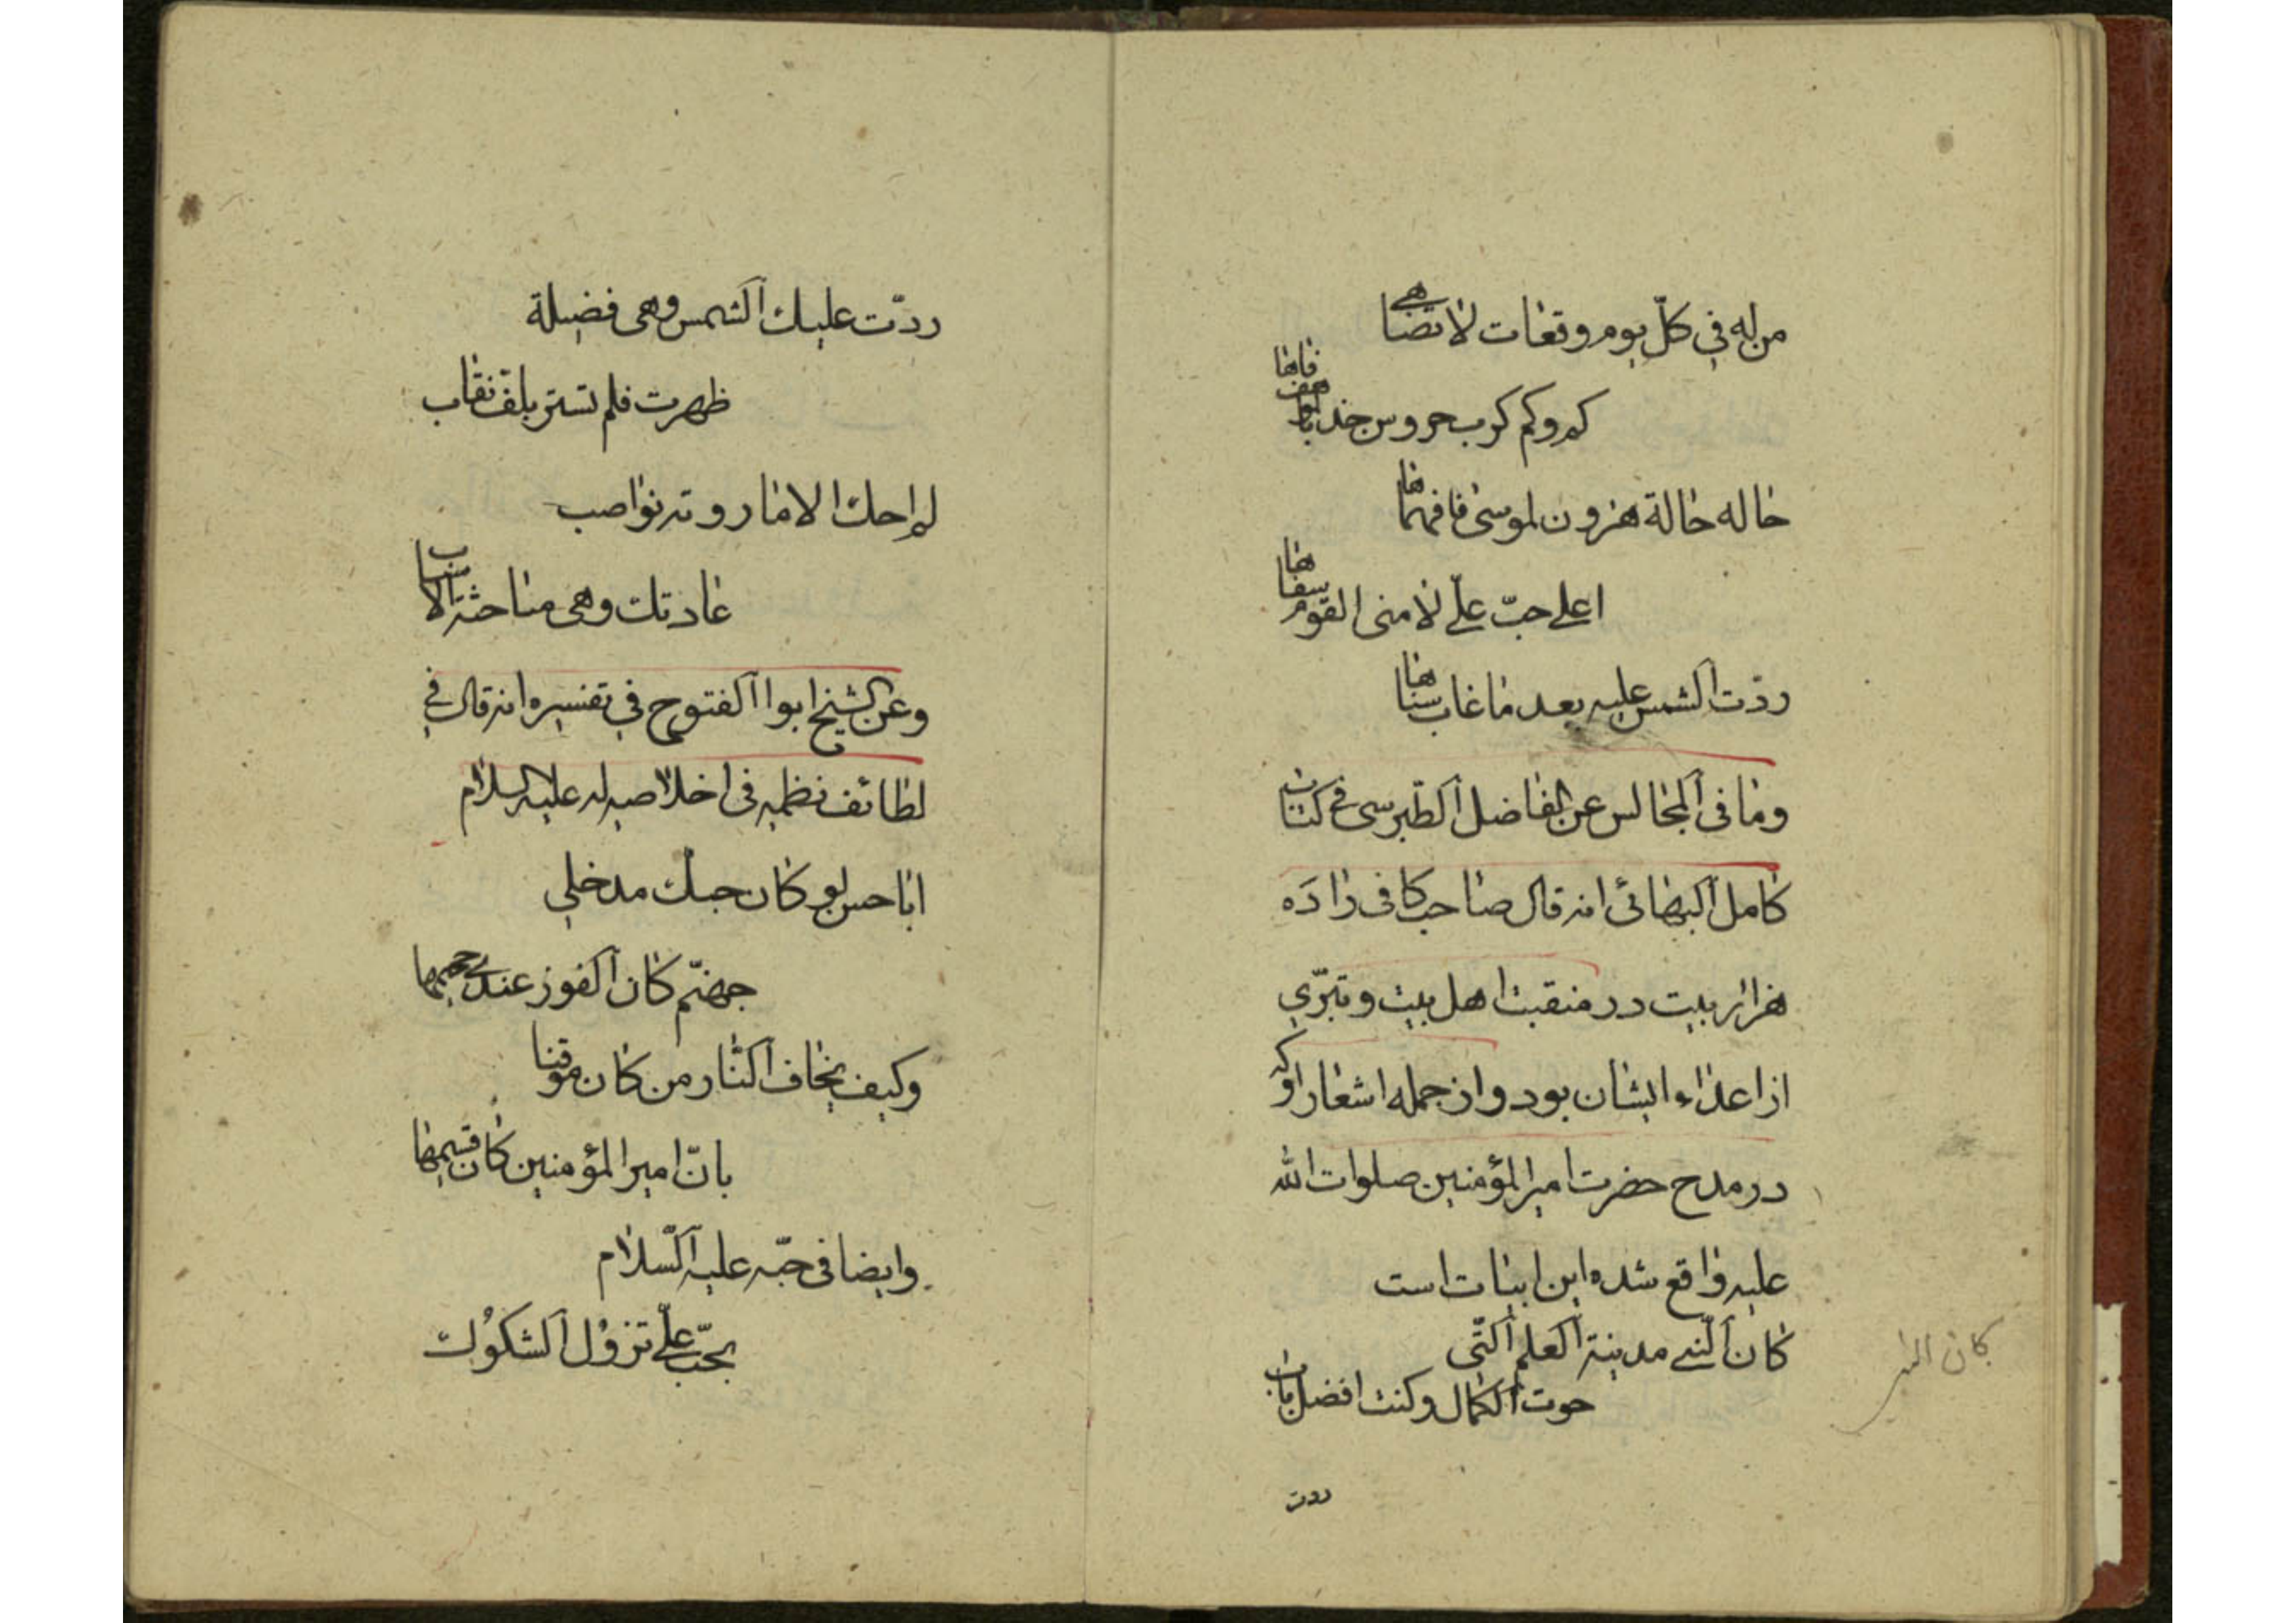 من له في كلّ يوم وقعات لا تضاهى
كم وكم كرب حروس خدبالواهف فاها
حاله حالة هرون لموسى فافهماها
اعلى حبّ علىّ لامنى القوم سفاها
ردّت الشمس عليه بعد ما غاب سناها
وما فى المجالس عن الفاضل الطبرسى فى كتاب
كامل البهائى انه قال صاحب كافى را ده
هزار بيت در منقبت اهل بيت و تبرّى
از اعداء ايشان بود و از جمله اشعار او كه
در مدح حضرت امير المؤمنين صلوات الله
عليه واقع شده اين ابيات است
كان النبى مدينة العلم الّتى
حوت الكمال وكنت افضل باب
ردت
كان النبى
ردّت عليك الشمس وهى فضيلة
ظهرت فلم تستر بلفّ نقاب
لم احك الا ما روته نواصب
عادتك وهى مباحثة الاسباب
وعن الشيخ ابوا الفتوح فى تفسيره انه قال فى
لطائف نظميه فى اخلاصه له عليه السلام
ابا حسن لو كان حبك مدخلى
جهنّم كان الفوز عندى جحيمها
وكيف يخاف النّار من كان موقنا
بانّ امير المؤمنين كان قسيمها
وايضا فى حبّه عليه السّلام
بحبّ علىّ تزول الشكوك